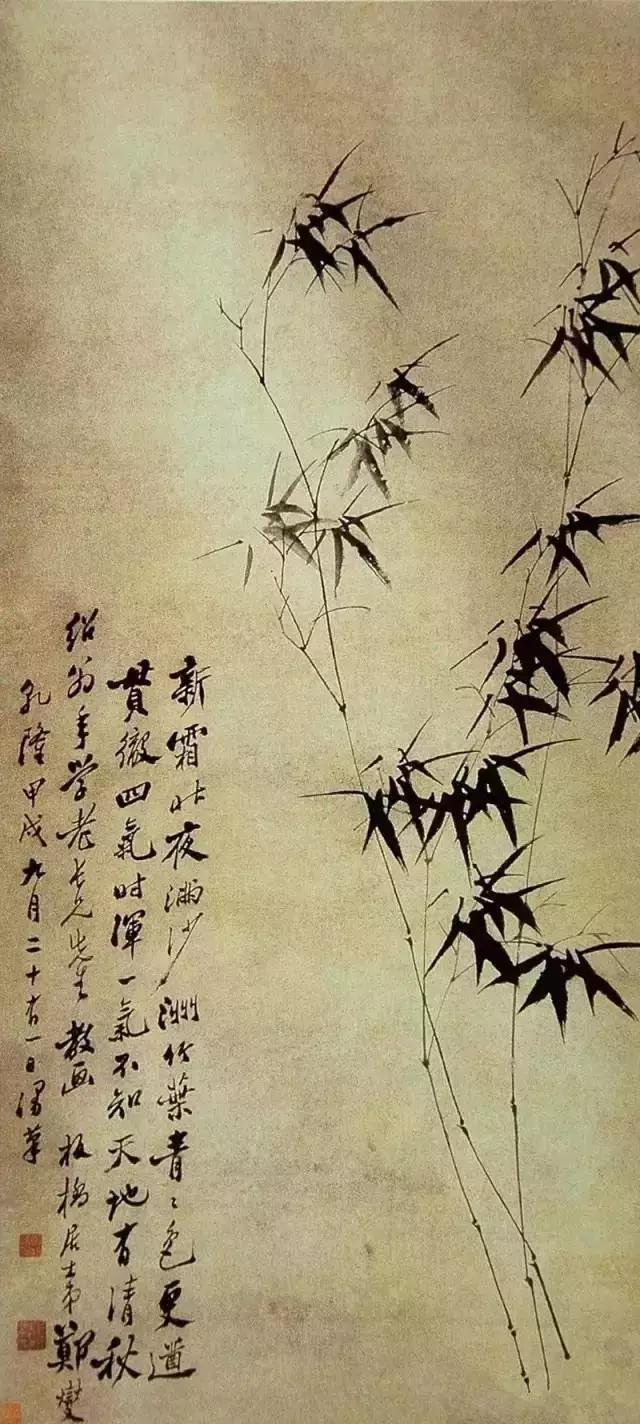 新霜昨夜滿沙洲竹葉青〻色更遒
貫徹四氣时渾一氣不知天地有清秋
绍翁年学老長兄先生 教画 板橋居士弟鄭燮
乾隆甲戌九月二十有一日